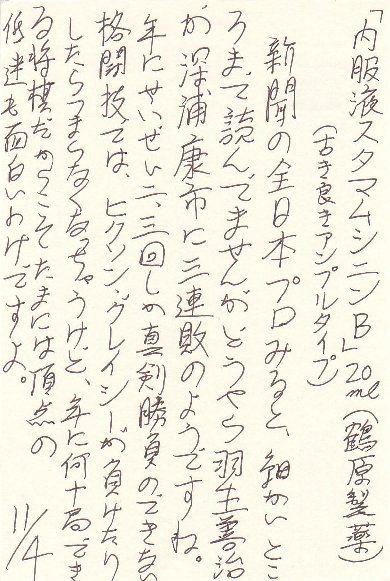 「内服液スタマムシニンBL20ml(鶴原製薬)
(古き良きアンプルタイプ)
新聞の全日本プロみると、細かいとこ
ろまで読んでませんがどうやら羽生善治
が深浦康市に三連敗のようですね。
年にせいぜい二、三回しか真剣勝負のできない
格闘技では、ヒクソン・グレイシーが負けたり
したらつまらなくなっちゃうけど、年に何十局でき
る将棋だからこそたまには頂点の
低迷も面白いわけですよ。
11/4